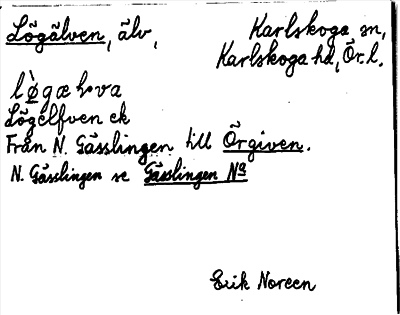 Lögälven, älv, Karlskoga sn,
Karlskoga hd, Ör. l.
lø̀gæLva
Lögelfven ek
Från N. Gässlingen till Örgiven.
N. Gässlingen se Gässlingen Nª
Erik Noreen